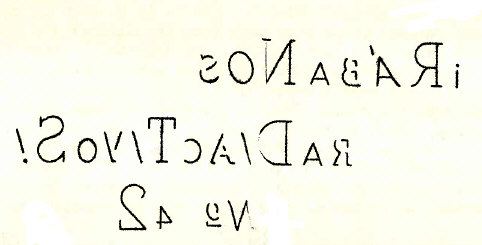 ¡RÁBANOS
RADIACTIVOS!
Nº 42